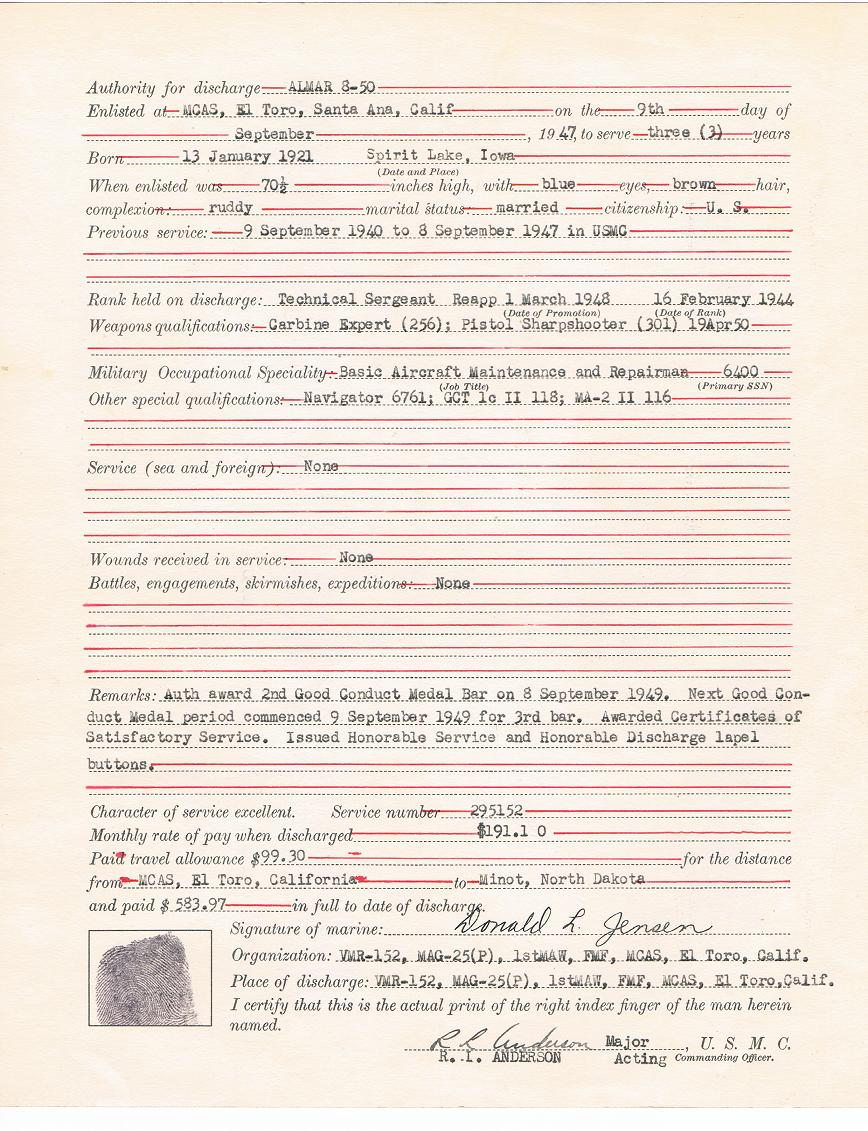 Authority for discharge ALMAR 8-50
Enlisted at MCAS, El Toro, Santa Ana, Calif on the 9th day of
September, 1947, to serve three (3) years
Born 13 January 1921 Spirit Lake, Iowa
(Date and Place)
When enlisted was 70½ inches high, with blue eyes, brown hair,
complexion: ruddy marital status: married citizenship: U. S.
Previous service: 9 September 1940 to 8 September 1947 in USMC
Rank held on discharge: Technical Sergeant Reapp 1 March 1948 16 February 1944
(Date of Promotion) (Date of Rank)
Weapons qualifications: Carbine Expert (256); Pistol Sharpshooter (301) 19Apr50
Military Occupational Speciality: Basic Aircraft Maintenance and Repairman 6400
(Job Title) (Primary SSN)
Other special qualifications: Navigator 6761; GCT 1c II 118; MA-2 II 116
Service (sea and foreign): None
Wounds received in service: None
Battles, engagements, skirmishes, expeditions: None
Remarks: Auth award 2nd Good Conduct Medal Bar on 8 September 1949. Next Good Con-
duct Medal period commenced 9 September 1949 for 3rd bar. Awarded Certificates of
Satisfactory Service. Issued Honorable Service and Honorable Discharge lapel
buttons.
Character of service excellent. Service number 295152
Monthly rate of pay when discharged $191.1 0
Paid travel allowance $99.30 for the distance
from MCAS, El Toro, California to Minot, North Dakota
and paid $ 583.97 in full to date of discharge.
Signature of marine: Donald L. Jensen
Organization: VMR-152, MAG-25(P), 1stMAW, FMF, MCAS, El Toro, Calif.
Place of discharge: VMR-152, MAG-25(P), 1stMAW, FMF, MCAS, El Toro,Calif.
I certify that this is the actual print of the right index finger of the man herein
named.
R L Anderson Major, U. S. M. C.
R. I. ANDERSON Acting Commanding Officer.